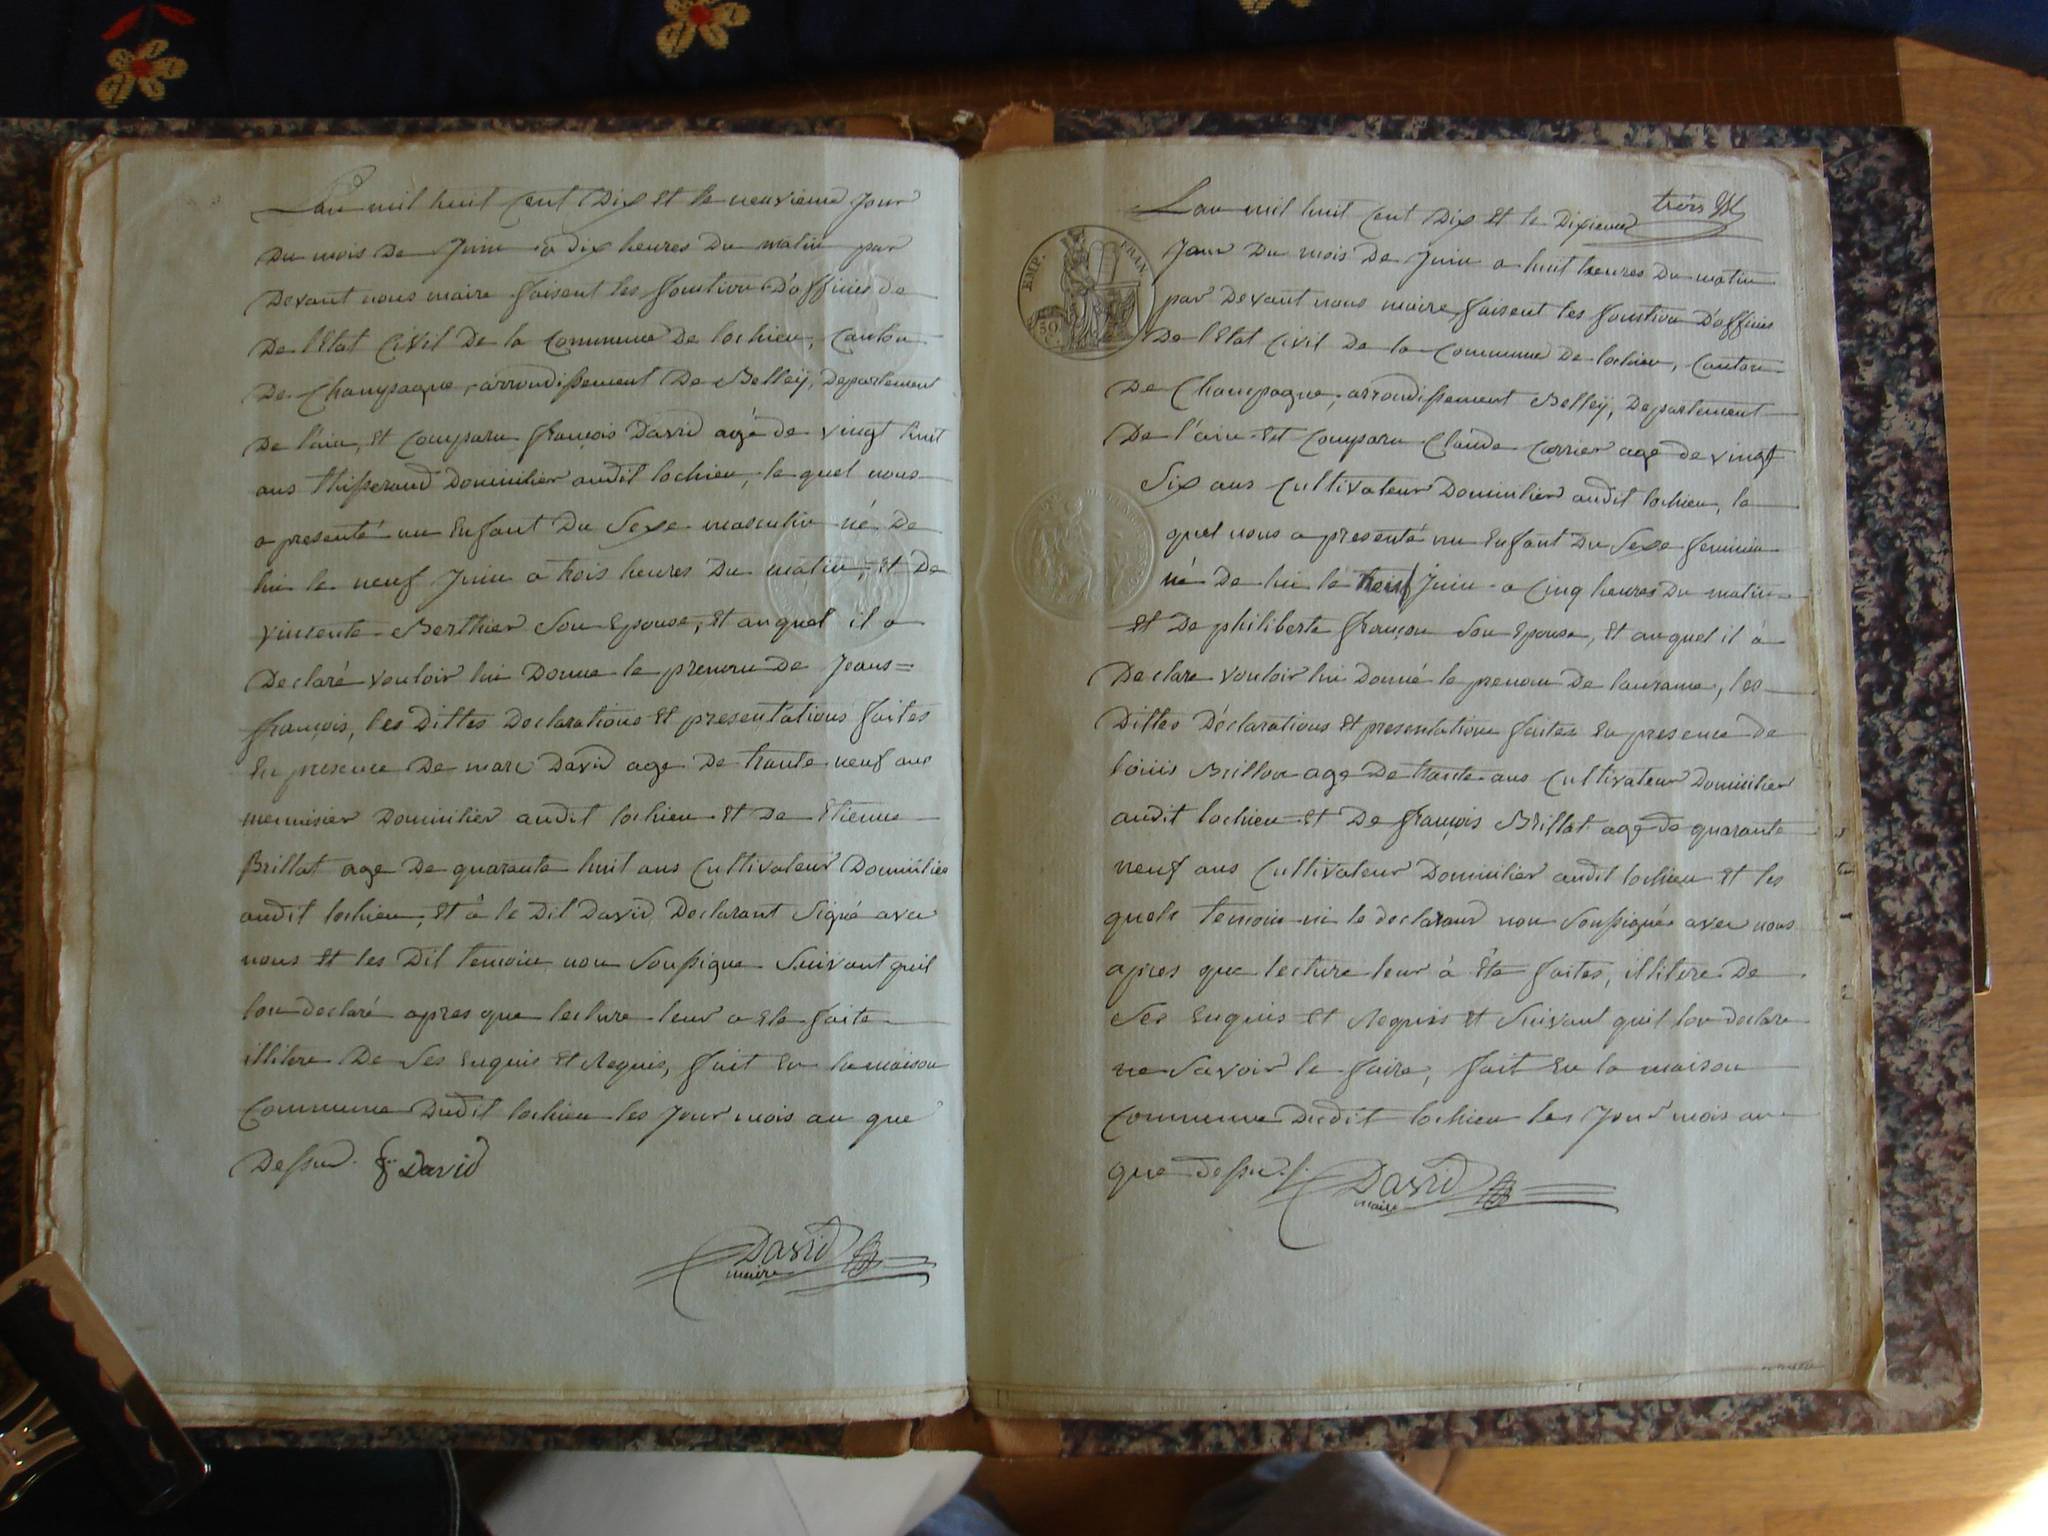 Lan mil huit Cent Dix Et le neuvieme Jour
Du mois De Juin a dix heures Du matin par
Devant nous maire faisent les fonction D'officies de
De l'Etat Civil De la Commune De lochieu, Canton
De Champagne, arrondissement De Belley, Departement
De l'ain, Et Comparu françois David agé de vingt huit
ans thisserand Domicilier audit lochieu, le quel nous
a presenté un Enfant Du Sexe masculin né De
lui le neuf Juin a trois heures Du matin, Et De
vincente Berthier Son Epouse, Et auquel il a
Declaré vouloir lui Donne le prenom De Jeans=
françois, les Dittes Declarations Et presentations faites
En presence De marc David age De trante neuf ans
menuisier Domicilier audit lochieu Et De Etienne
Brillat age De quarante huit ans Cultivateur Domicilier
audit lochieu, Et à le Dit David Declarant Signé avec
nous Et les Dit temoin non Soussigne Suivant quil
lon declaré apres que lecture leur a Ete faite
illitere De Ses Enquis Et Requis, fait En la maison
Commune Dudit lochieu les Jour mois an que
Dessus. f David
David
maire
trois
Lan mil huit Cent Dix Et le Dixieme
Jour Du mois De Juin a huit heures Du matin
EMP. FRAN.
50
par Devant nous maire faisent les fonction D'officies
De l'Etat Civil De la Commune De lochieu, Canton
De Champagne, arrondissement Belley, Departement
De l'ain Et Comparu Claude Carrier age de vingt
Six ans Cultivateur Domicilier audit lochieu, le
quel nous a presenté un Enfant Du Sexe feminin
né De lui le Juin a Cinq heures Du matin
Et De philiberte françon Son Epouse, Et auquel il à
Declare vouloir lui Donné le prenom De lauranne, les
Dittes Déclarations Et presentation faites En presence de
louis Brillon age De trante ans Cultivateur Domicilier
audit lochieu Et De françois Brillat age de quarante
neuf ans Cultivateur Domicilier audit lochieu Et les
quels temoin ni le declarand non Soussigné avec nous
apres que lecture leur à Ete faites, illitere De
Ses Enquis Et Requis Et Suivant quil lon declare
ne Savoir le faire, fait En la maison
Commune Dudit lochieu les Jour mois an
que dessus.
David
maire